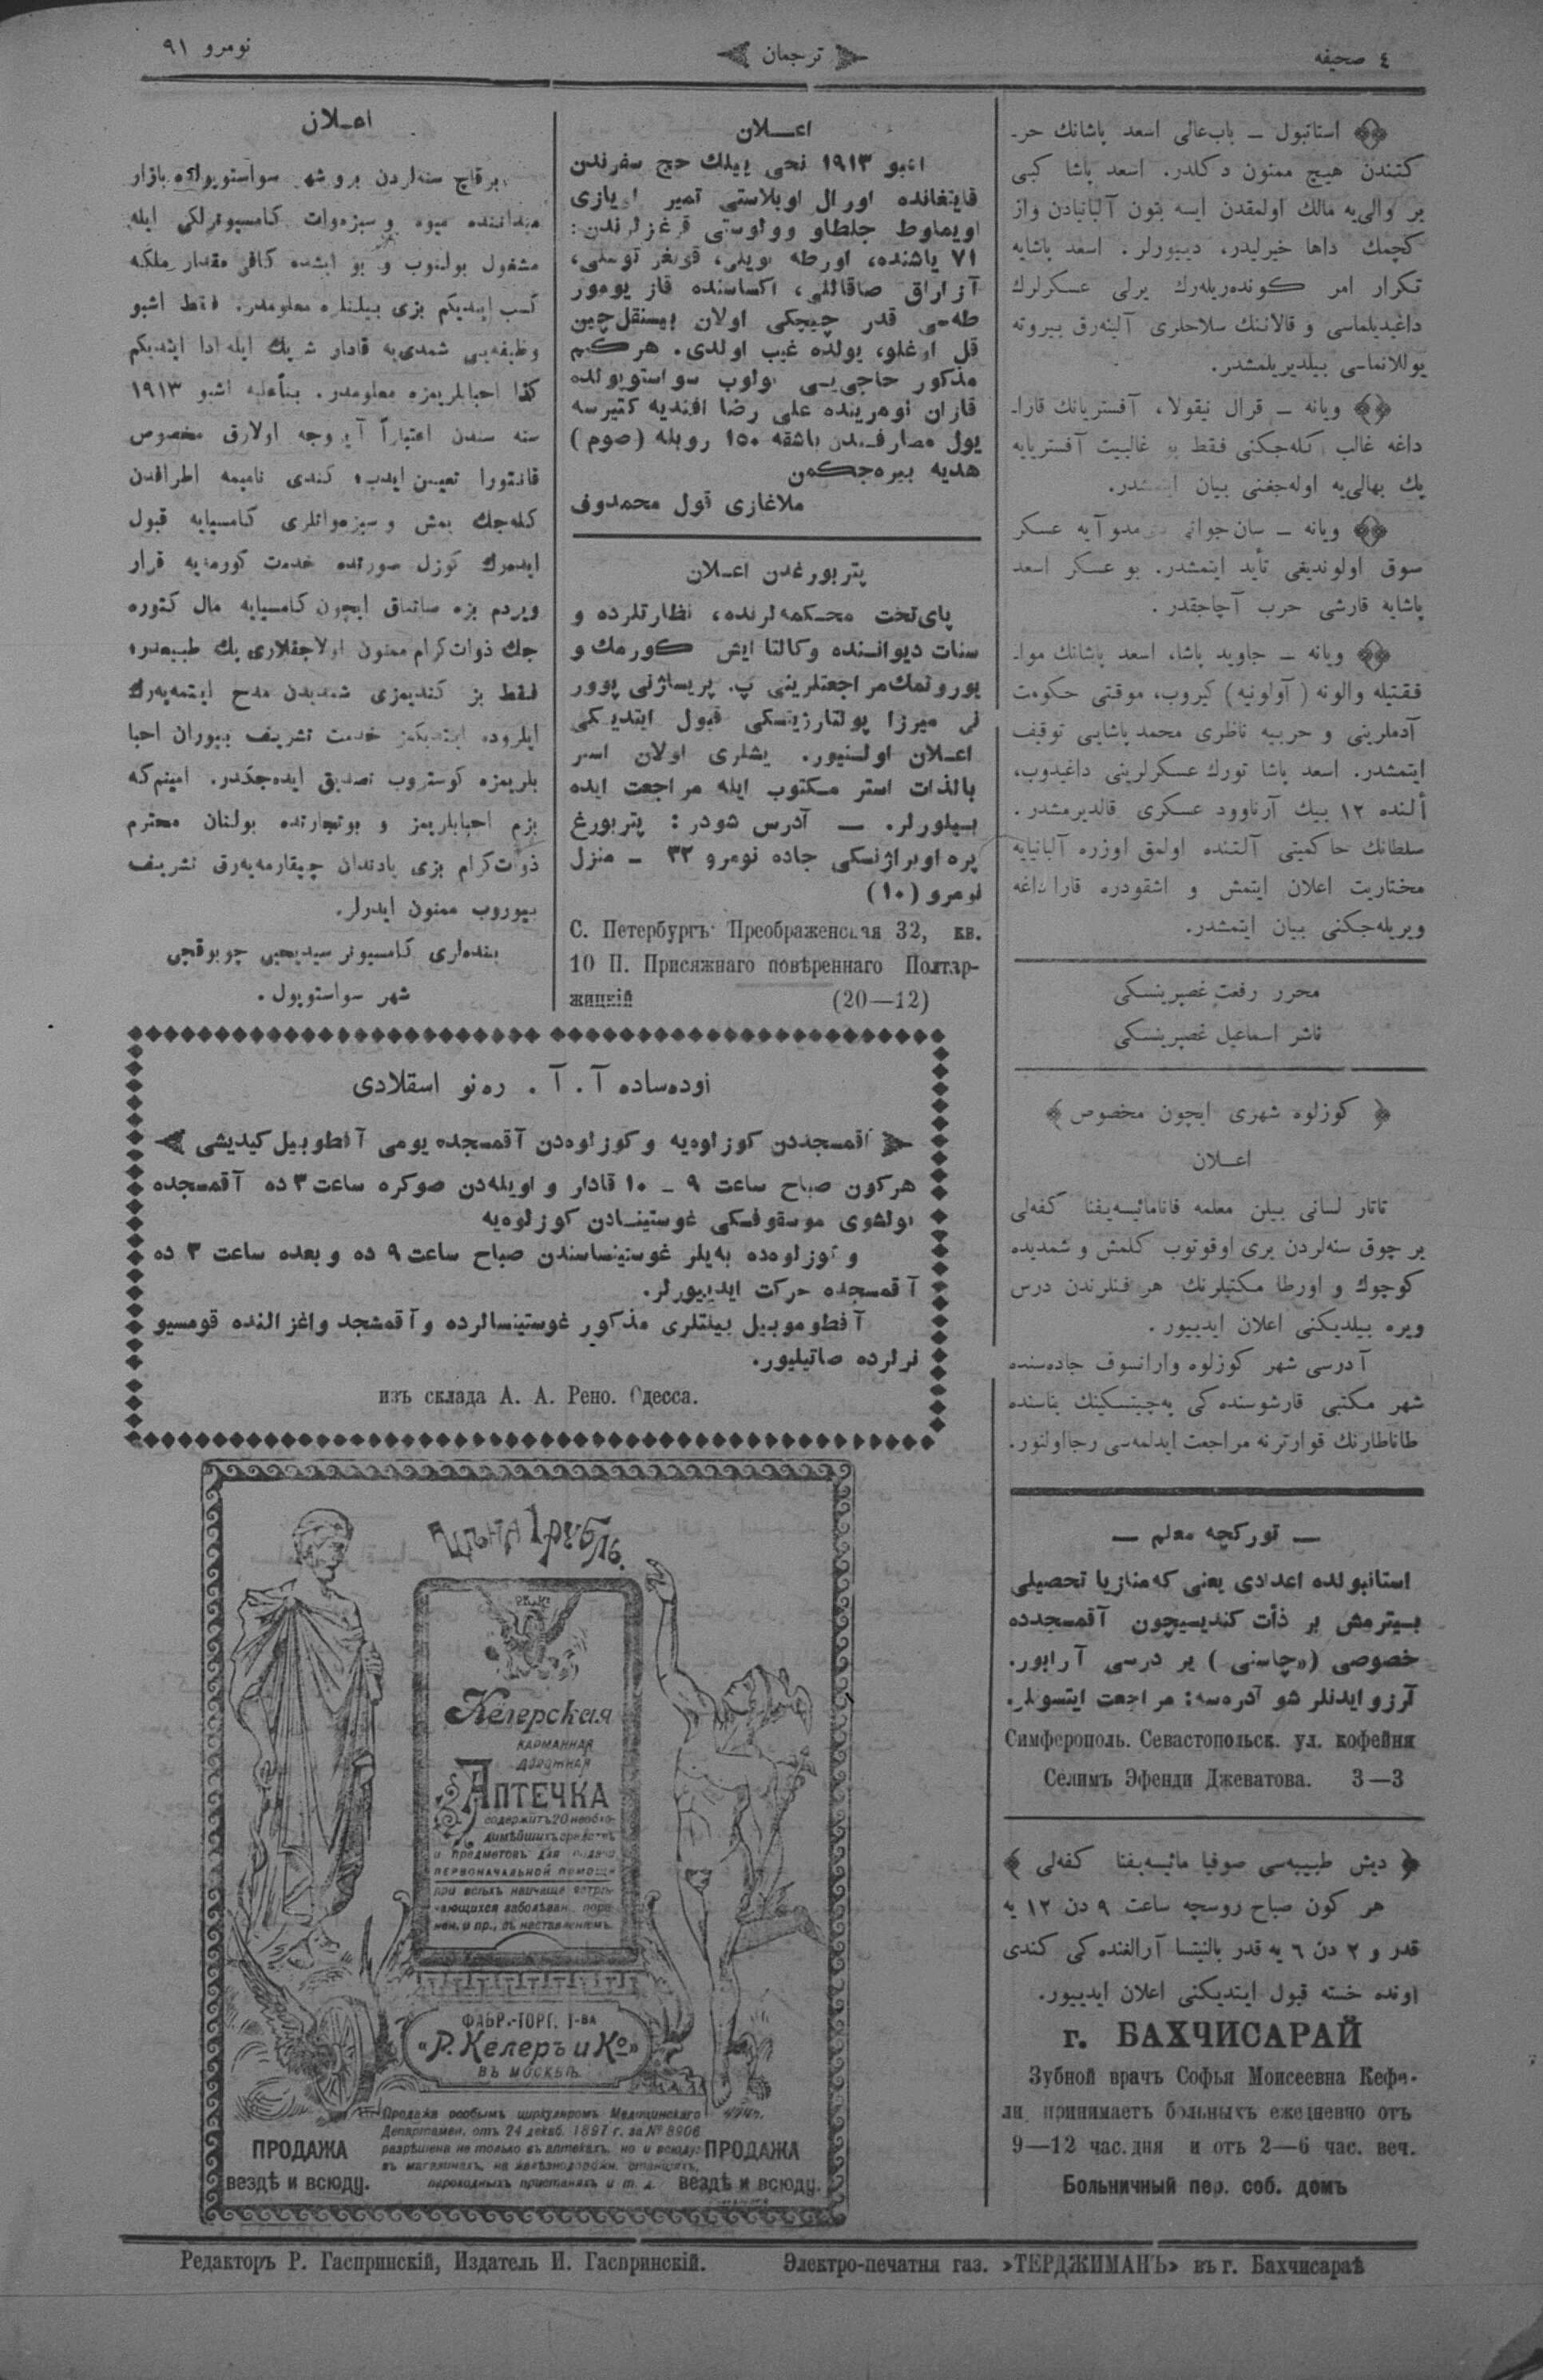 ٤ صحیفه
ترجمان
نومرو ٩١
استانبول ـ باب‌عالی اسعد پاشانك حر‌ـ
كتندن هیچ ممنون دكلدر. اسعد پاشا كبی
بر والی‌یه مالك اولمقدن ایسه بتون آلبانیادن واز
كچمك داها خیرلیدر، دییورلر. اسعد پاشایه
تكرار امر كونده‌ریله‌رك یرلی عسكرلرك
داغیدیلماسی و قالاننك سلاحلری آلینه‌رق بیروته
یوللانماسی بیلدیریلمشدر.
ویانه ـ قرال نیقولا، آفستریانك قارا‌ـ
داغه غالب كله‌جكنی فقط بو غالبیت آفستریایه
پك بهالی‌یه اوله‌جغنی بیان ایتمشدر.
ویانه ـ سان‌جوانی مدوآیه عسكر
سوق اولوندیغی تأید ایتمشدر. بو عسكر اسعد
پاشایه قارشی حرب آچاجقدر.
ویانه ـ جاوید پاشا، اسعد پاشانك موا‌ـ
فقتیله والونه (آولونیه) كیروب، موقتی حكومت
آدملرینی و حربیه ناظری محمد پاشایی توقیف
ایتمشدر. اسعد پاشا تورك عسكرلرینی داغیدوب،
ألنده ١٢ بیك آرناوود عسكری قالدیرمشدر.
سلطانك حاكمیتی آلتنده اولمق اوزره آلبانیایه
مختاریت اعلان ایتمش و اشقودره قارا داغه
ویریله‌جكنی بیان ایتمشدر.
محرر رفعت غصپرینسكی
ناشر اسماعیل غصپرینسكی
﴿ كوزلوه شهری ایچون مخصوص ﴾
اعـلان
تاتار لسانی بیلن معلمه قانامائیسه‌یفنا كفه‌لی
بر چوق سنه‌لردن بری اوقوتوب كلمش و شمدیده
كوچوك و اورطا مكتبلرنك هر فنلرندن درس
ویره بیلدیكنی اعلان ایدییور.
آدرسی شهر كوزلوه وارانسوف جاده‌سنده
شهر مكتبی قارشوسنده‌كی به‌چیتسكینك بناسنده
طاناطارنك قوارترنه مراجعت ایدلمه‌سی رجا اولنور.
— توركچه معلم —
استانبولده اعدادی یعنی كه‌مناز یا تحصیلی
بیترمش بر ذأت كندیسیچون آقمسجدده
خصوصی (چاسنی) بر درسی آرایور.
آرزو ایدنلر شو آدره‌سه: مراجعت ایتسونلر.
Симферополь. Севастопольск. ул. кофейня
Селимъ Эфенди Джеватова. 3—3
﴿ دیش طبیبه‌سی صوفیا مائیسه‌یفنا كفه‌لی ﴾
هر كون صباح روسچه ساعت ٩ دن ١٢ یه
قدر و ٢ دن ٦ یه قدر بالنیتسا آرالغنده‌كی كندی
اونده خسته قبول ایتدیكنی اعلان ایدییور.
г. БАХЧИСАРАЙ
Зубной врачъ Софья Моисеевна Кефи-
ли принимаетъ больныхъ ежедневно отъ
9—12 час. дня и отъ 2—6 час. веч.
Больничный пер. соб. домъ
اعـــلان
اشبو ١٩١٣ نجی ییلك حج سفرندن
قایتغانده اورال اوبلاستی تمیر اویازی
اویماوط جلطاو وولوستی قرغزلرندن:
٧١ یاشنده، اورطه بویلی، قوڭغر توسلی،
آزاراق صاقاللی، اكساسنده قاز یومور
طه‌سی قدر چیچكی اولان بیسنقل‌چین
قل اوغلو، یولده غیب اولدی. هر كیم
مذكور حاجی‌یی بولوب سواستوپولده
قازان نومرینده علی رضا افندیه كتیرسه
یول مصارفندن باشقه ١٥٠ روبله (صوم)
هدیه بیره‌جكمن
ملاغازی قول محمدوف
پتربورغدن اعـلان
پای‌تخت محكمه‌لرنده، نظارتلرده و
سنات دیواننده وكالتا ایش كورمك و
یوروتمك مراجعتلرینی پ. پریساژنی پوور
نی میرزا پولتارژیتسكی قبول ایتدیكی
اعـلان اولـنیور. یشلری اولان اسر
بالذات استر مكتوب ایله مراجعت ایده
بـیلورلر. — آدرس شودر: پتربورغ
پره اوبراژنسكی جاده نومرو ٣٢ ـ منزل
نومرو (١٠)
С. Петербургъ Преображенская 32, кв.
10 П. Присяжнаго повѣреннаго Полтар-
жицкій (20—12)
اعـلان
برقاچ سنه‌لردن برو شهر سواستوپولده بازار
میداننده میوه و سبزه‌وات كامسیونرلكی ایله
مشغول بولنوب و بو ایشده كافی مقدار ملكه
كسب ایتدیكم بزی بیلنلره معلومدر. فقط اشبو
وظیفه‌یی شمدی‌یه قادار شریك ایله ادا ایتدیكم
كذا احبابلریمزه معلومدر. بناءً علیه اشبو ١٩١٣
سنه سندن اعتباراً آیروجه اولارق مخصوص
قانتورا تعیین ایدوب كندی نامیمه اطرافدن
كله‌جك یمش و سبزه‌واتلری كامسیایه قبول
ایدەرك كوزل صورتده خدمت كورمه‌یه قرار
ویردم بزه صاتماق ایچون كامسیایه مال كتوره
جك ذوات كرام ممنون اولاجقلاری پك طبیعیدر
فقط بز كندیمزی شمدیدن مدح ایتمه‌یه‌رك
ایلروده ایتدیكمز خدمت تشریف بیوران احبا
بلریمزه كوستروب تصدیق ایده‌جكدر. امینم‌كه
بزم احبابلریمز و بوتجارتده بولنان محترم
ذوات كرام بزی یادندان چیقارمه‌یه‌رق تشریف
بیوروب ممنون ایدرلر.
بنده‌لری كامسیونر سیدیحیی چوبوقچی
شهر سواستوپول.
اوده‌ساده آ. آ. ره‌نو اسقلادی
آقمسجددن كوزلوه‌یه و كوزلوه‌دن آقمسجده یومی آفطوبیل كیدیشی
هركون صباح ساعت ٩ ـ ١٠ قادار و اویله‌دن صوكره ساعت ٣ ده آقمسجده
بولشوی موسقوفسكی غوستینسادن كوزلوه‌یه
و كوزلوه‌ده به‌یلر غوستینساسندن صباح ساعت ٩ ده و بعده ساعت ٣ ده
آقمسجده حركت ایدییورلر.
آفطوموبیل بیلتلری مذكور غوستینسالرده و آقمشجد واغزالنده قومسیو
نرلرده صاتیلیور.
изъ склада А. А. Рено. Одесса.
Цѣна 1 рубль.
Келерская
карманная
дорожная
Аптечка
содержитъ 20 необхо-
димѣйшихъ средствъ
и предметовъ для подачи
первоначальной помощи
при всѣхъ наичаще встрѣ-
чающихся заболѣван., поранен. и пр., съ наставленіемъ.
Фабр.-торг. Т-ва
«Р. Келеръ и Ко»
въ Москвѣ.
Продажа особымъ циркуляромъ Медицинскаго
Департамен. отъ 24 декаб. 1897 г. за № 8906
разрѣшена не только въ аптекахъ, но и всюду:
въ магазинахъ, на желѣзнодорожн. станціяхъ,
пароходныхъ пристаняхъ и т. д.
ПРОДАЖА
вездѣ и всюду.
ПРОДАЖА
вездѣ и всюду.
Редакторъ Р. Гаспринскій, Издатель И. Гаспринскій.
Электро-печатня газ. »ТЕРДЖИМАНЪ» въ г. Бахчисараѣ